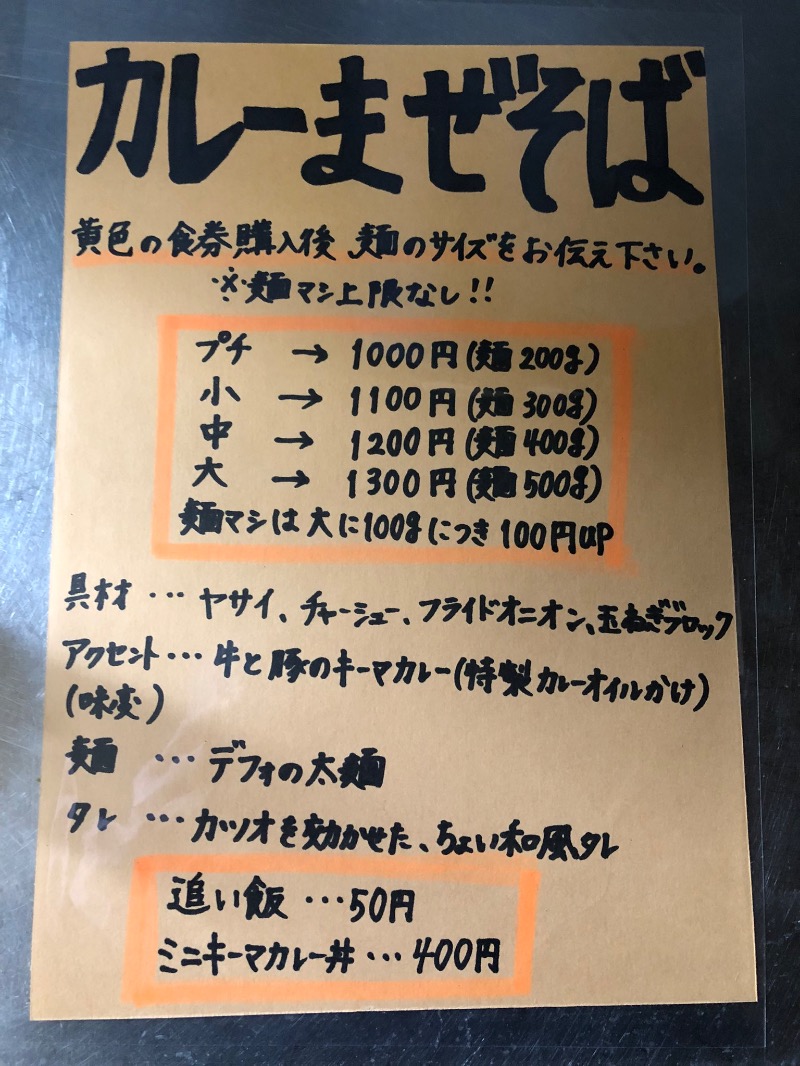 カレーまぜそば
黄色の食券購入後、麺のサイズをお伝え下さい。
※麺マシ上限なし!!
プチ → 1000円(麺200g)
小 → 1100円(麺300g)
中 → 1200円(麺400g)
大 → 1300円(麺500g)
麺マシは大に100gにつき100円UP
具材 … ヤサイ、チャーシュー、フライドオニオン、玉ねぎブロック
アクセント … 牛と豚のキーマカレー(特製カレーオイルかけ)
(味変)
麺 … デフォの太麺
タレ … カツオを効かせた、ちょい和風タレ
追い飯 … 50円
ミニキーマカレー丼 … 400円